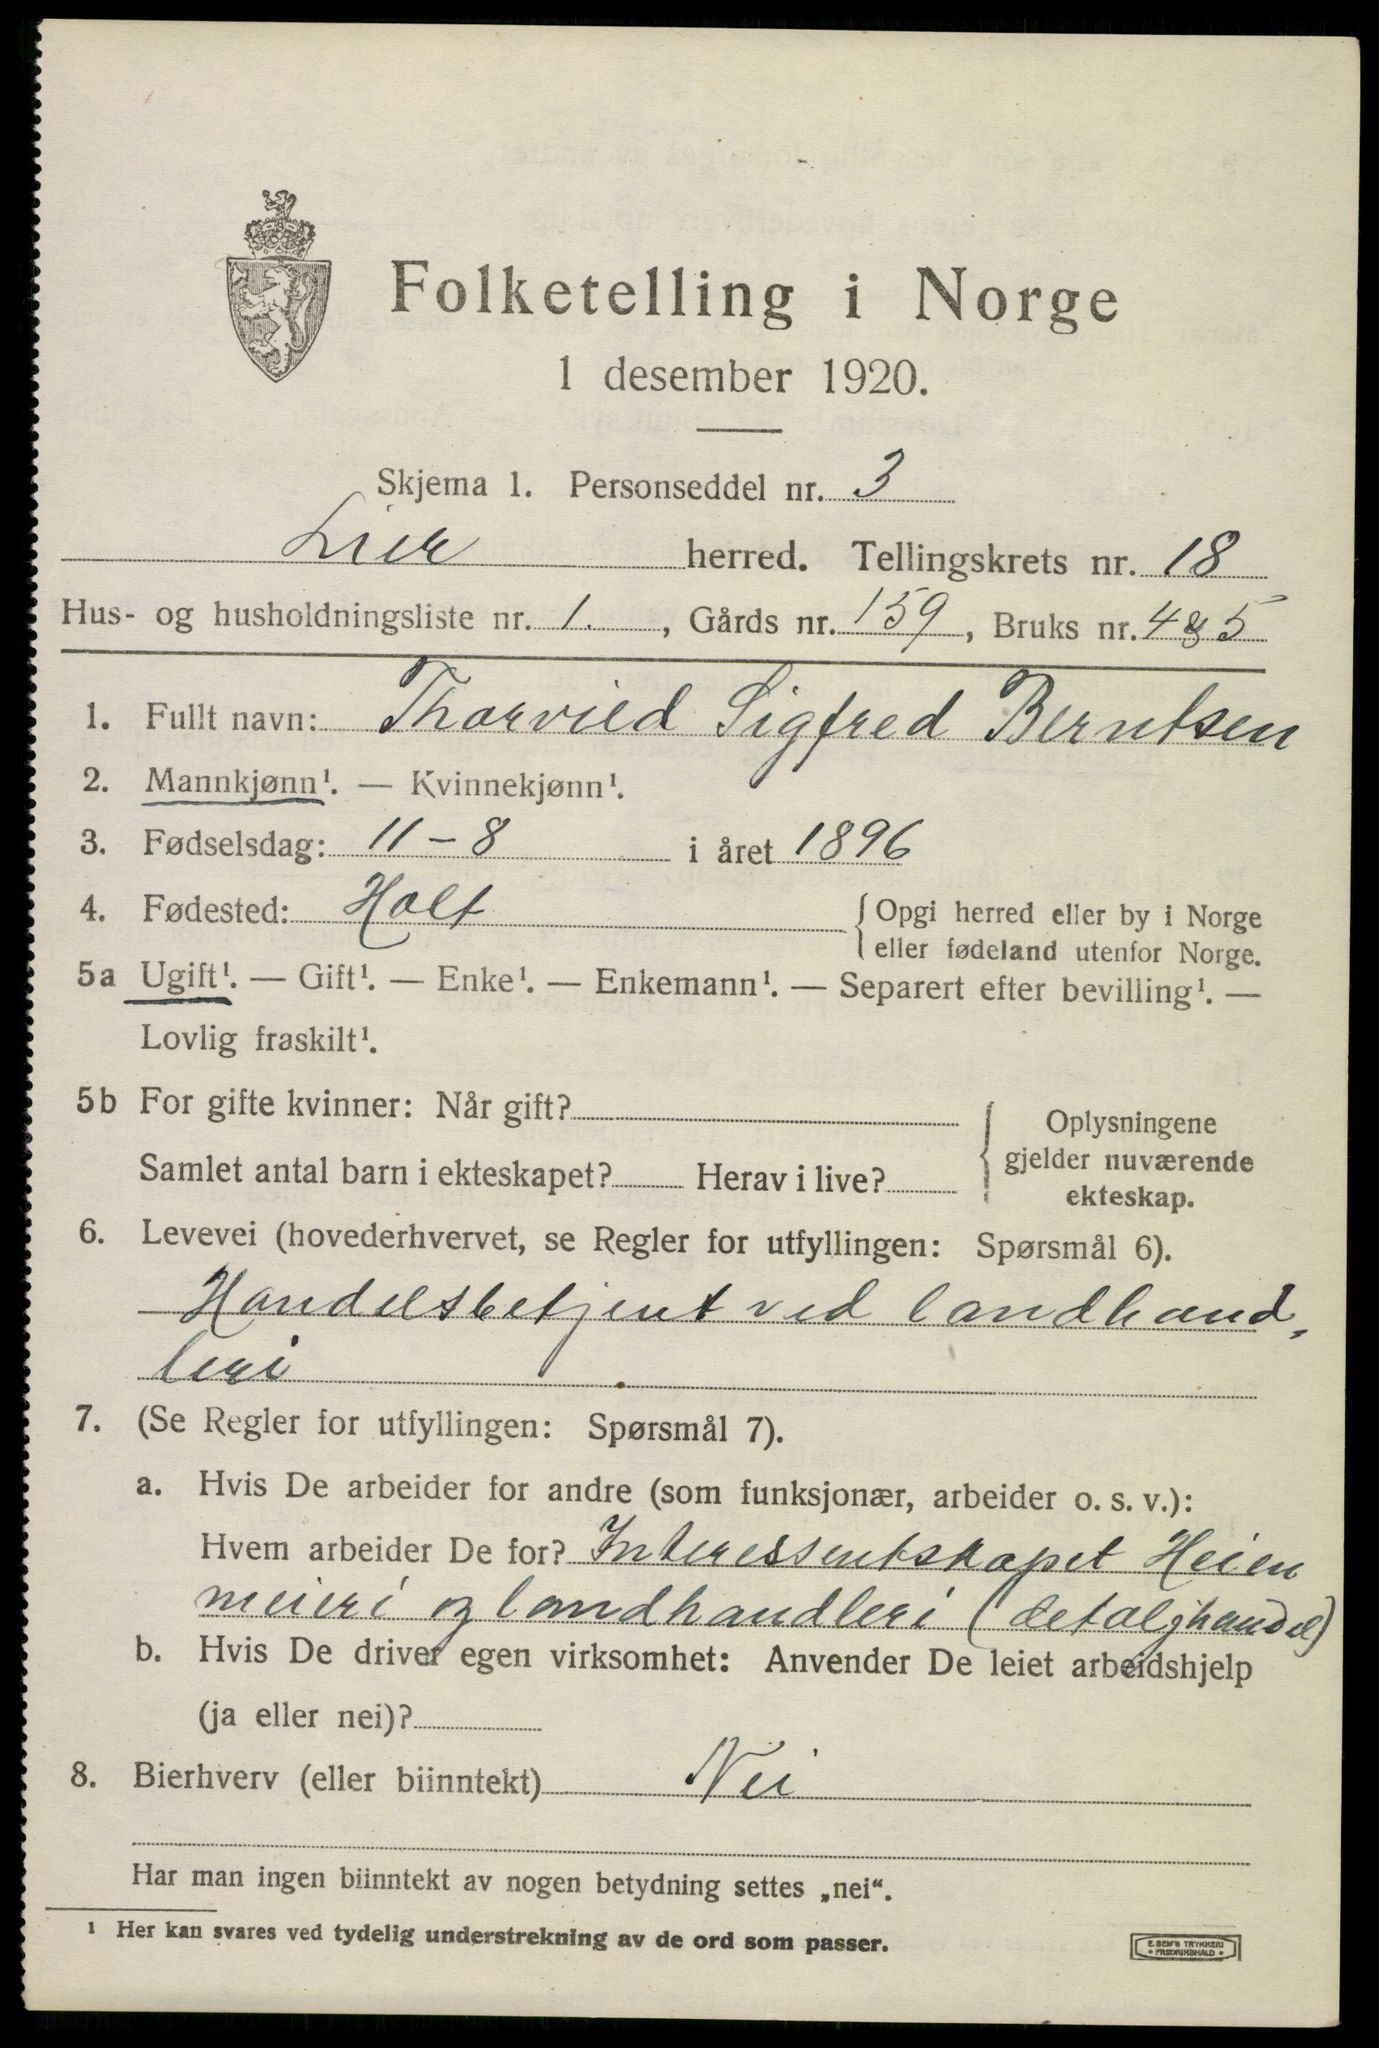 Folketelling i Norge
1 desember 1920.
Skjema 1. Personseddel nr. 3
Lier herred. Tellingskrets nr. 18
Hus- og husholdningsliste nr. 1. , Gårds nr. 159, Bruks nr. 4&5
1. Fullt navn: Thorvild Sigfred Berntsen
2. Mannkjønn¹. — Kvinnekjønn¹.
3. Fødselsdag: 11-8 i året 1896
4. Fødested: Holt
Opgi herred eller by i Norge
eller fødeland utenfor Norge.
5a Ugift¹. — Gift¹. — Enke¹. — Enkemann¹. — Separert efter bevilling¹. —
Lovlig fraskilt¹.
5b For gifte kvinner: Når gift?
Samlet antal barn i ekteskapet? Herav i live?
Oplysningene
gjelder nuværende
ekteskap.
6. Levevei (hovederhvervet, se Regler for utfyllingen: Spørsmål 6).
Handelsbetjent ved landhand-
leri
7. (Se Regler for utfyllingen: Spørsmål 7).
a. Hvis De arbeider for andre (som funksjonær, arbeider o. s. v.):
Hvem arbeider De for? Interessentskapet Heien
meieri og landhandleri (detaljhandel)
b. Hvis De driver egen virksomhet: Anvender De leiet arbeidshjelp
(ja eller nei)?
8. Bierhverv (eller biinntekt) Nei
Har man ingen biinntekt av nogen betydning settes „nei“.
¹ Her kan svares ved tydelig understrekning av de ord som passer.
E. SEM'S TRYKKERI
• FREDRIKSHALD •